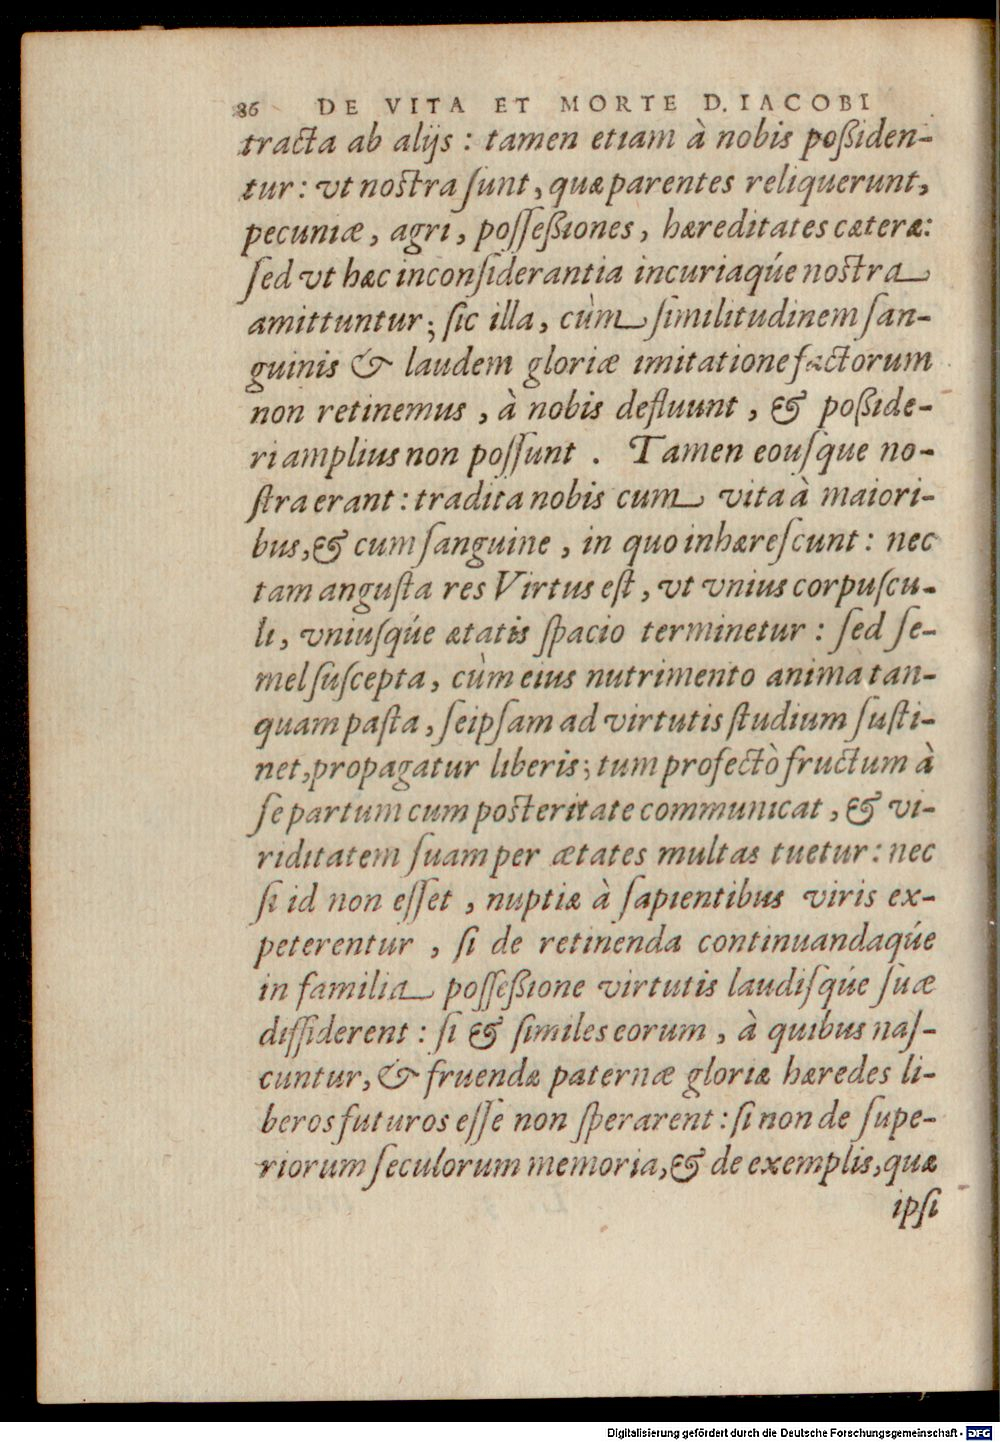 86 DE VITA ET MORTE D. IACOBI
tracta ab alijs : tamen etiam à nobis poßiden-
tur : vt nostra ſunt, quæ parentes reliquerunt,
pecuniæ, agri, poſſeßiones, hæreditates cæteræ:
ſed vt hæc inconſiderantia incuriaqúe nostra
amittuntur; ſic illa, cùm ſimilitudinem ſan-
guinis & laudem gloriæ imitatione factorum
non retinemus, à nobis defluunt, & poßide-
ri amplius non poſſunt . Tamen eouſque no-
ſtra erant : tradita nobis cum vita à maiori-
bus, & cum ſanguine, in quo inhæreſcunt : nec
tam anguſta res Virtus eſt, vt vnius corpuſcu-
li, vniuſqúe ætatis ſpacio terminetur : ſed ſe-
mel ſuſcepta, cùm eius nutrimento anima tan-
quam paſta, ſeipſam ad virtutis ſtudium ſuſti-
net, propagatur liberis; tum profectò fructum à
ſe partum cum posteritate communicat, & vi-
riditatem ſuam per ætates multas tuetur : nec
ſi id non eſſet, nuptiæ à ſapientibus viris ex-
peterentur, ſi de retinenda continuandaqúe
in familia poſſeßione virtutis laudiſqúe ſuæ
diſſiderent : ſi & ſimiles eorum, à quibus naſ-
cuntur, & fruendæ paternæ gloriæ hæredes li-
beros futuros eſſe non ſperarent : ſi non de ſupe-
riorum ſeculorum memoria, & de exemplis, quæ
ipſi
Digitalisierung gefördert durch die Deutsche Forschungsgemeinschaft - DFG